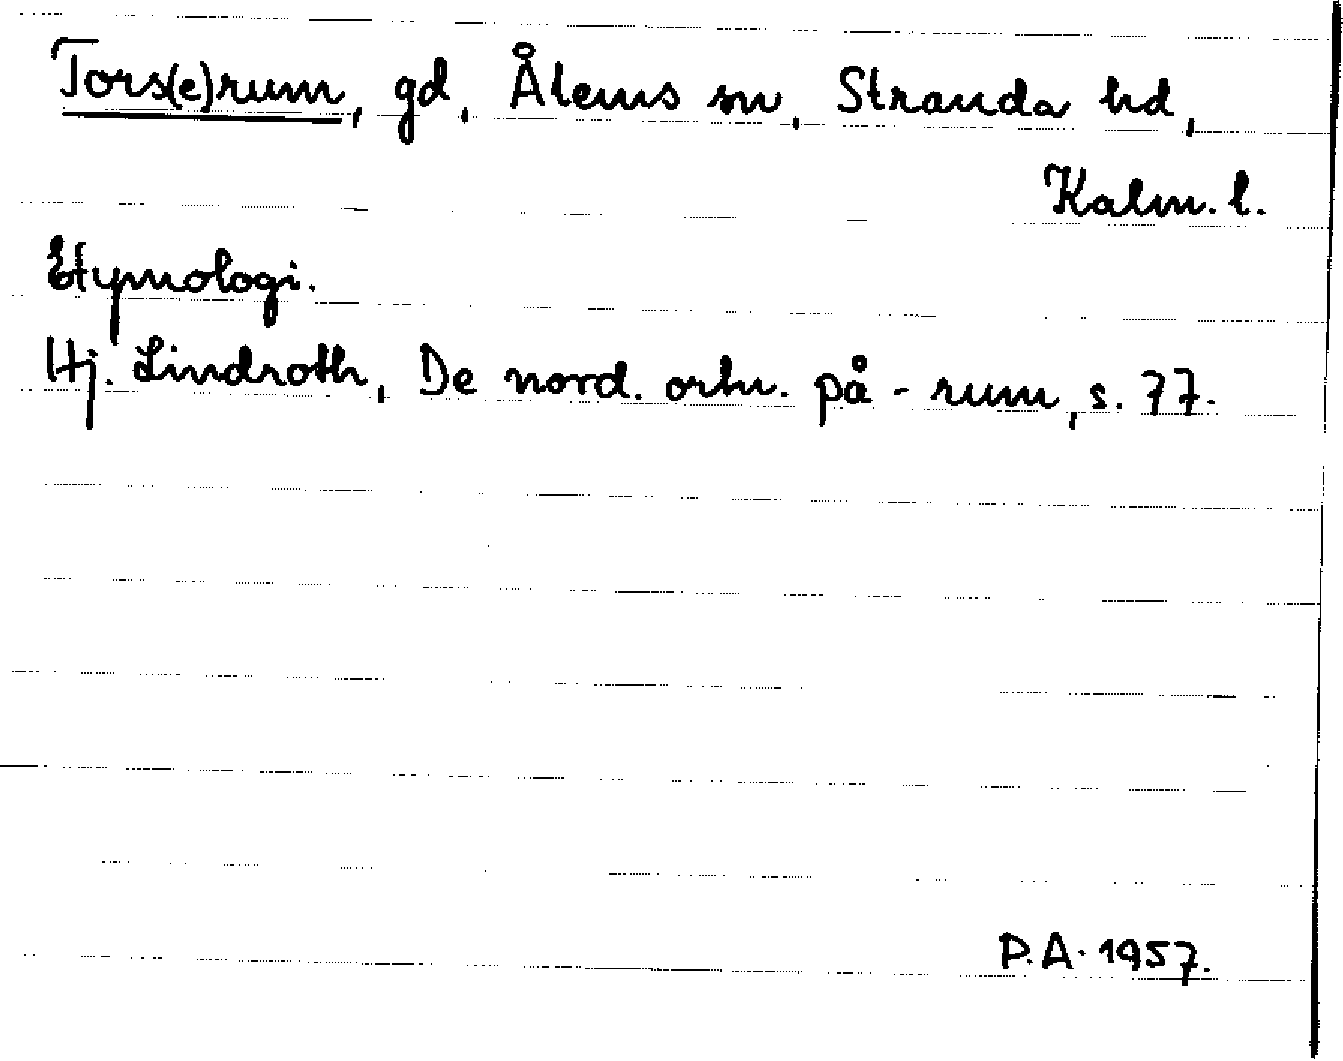 Tors(e)rum, gd, Ålems sn, Stranda hd,
Kalm. l.
Etymologi.
Hj. Lindroth, De nord. ortn. på -rum, s. 77.
P.A. 1957.